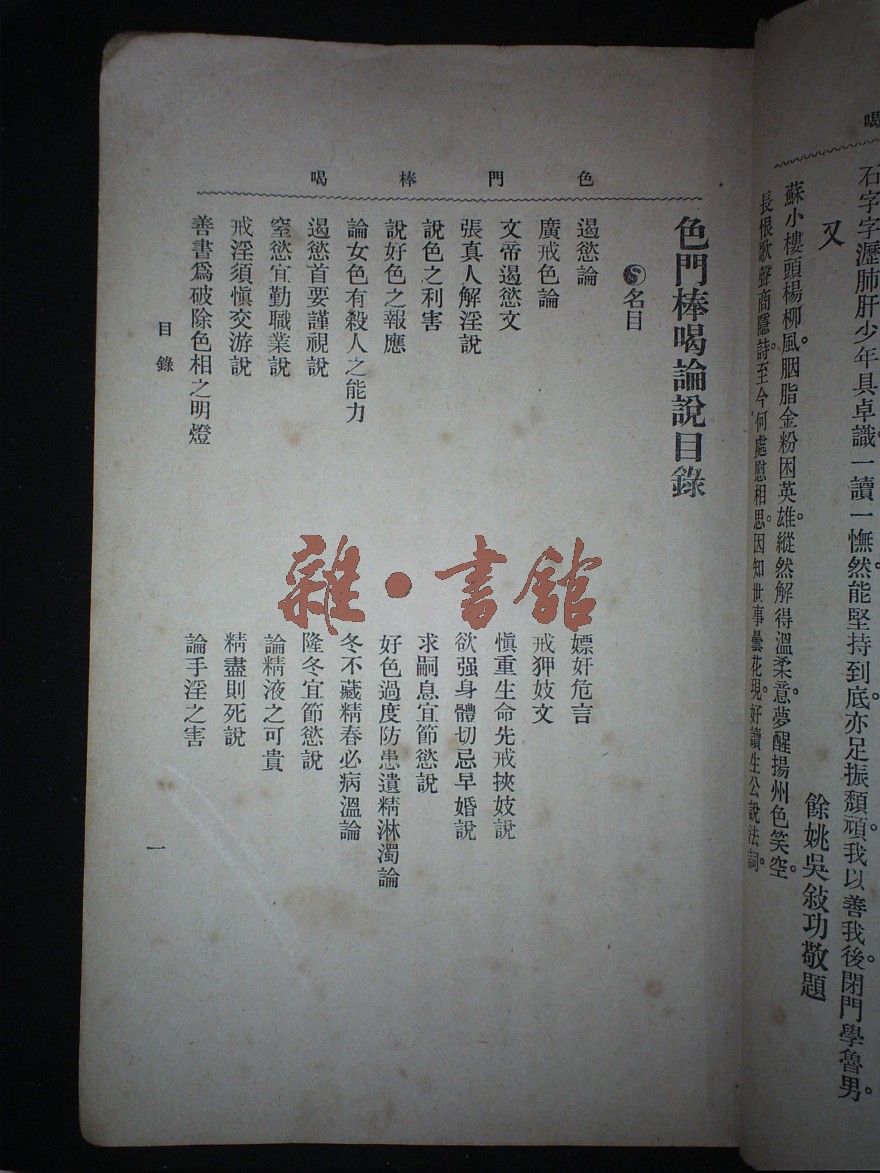 喝
石字字瀝肺肝少年具卓識一讀一憮然。能堅持到底。亦足振頹頑。我以善我後。閉門學魯男。
餘姚吳敍功敬題
又
蘇小樓頭楊柳風。胭脂金粉困英雄。縱然解得溫柔意。夢醒揚州色笑空。
長恨歌聲商隱詩。至今何處慰相思。因知世事曇花現。好讀生公說法詞。
色門棒喝
色門棒喝論說目錄
名目
遏慾論
廣戒色論
文帝遏慾文
張真人解淫說
說色之利害
說好色之報應
論女色有殺人之能力
遏慾首要謹視說
窒慾宜勤職業說
戒淫須愼交游說
善書爲破除色相之明燈
嫖奸危言
戒狎妓文
愼重生命先戒挾妓說
欲强身體切忌早婚說
求嗣息宜節慾說
好色過度防患遺精淋濁論
冬不藏精春必病溫論
隆冬宜節慾說
論精液之可貴
精盡則死說
論手淫之害
目錄
一
雜·書館